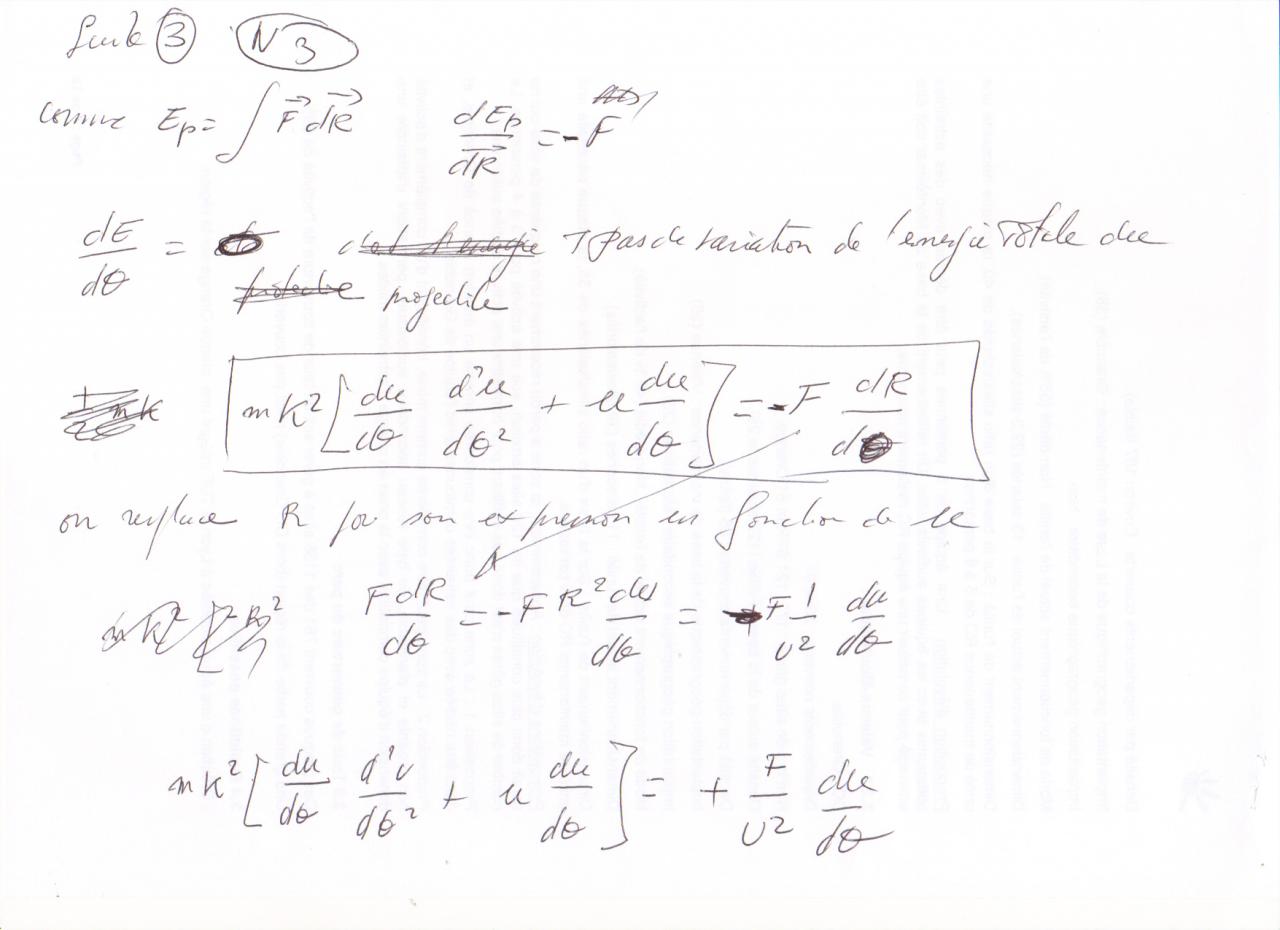 Suite 3 N3
comme Ep = ∫ F⃗ dR⃗ dEp/dR⃗ = - F
dE/dθ = 0 pas de variation de l'energie Totale du
projectile
mK² [ du/dθ d²u/dθ² + u du/dθ ] = - F dR/dθ
on replace R par son expression en fonction de u
F dR/dθ = - F R² du/dθ = + F 1/u² du/dθ
mK² [ du/dθ d²u/dθ² + u du/dθ ] = + F/u² du/dθ